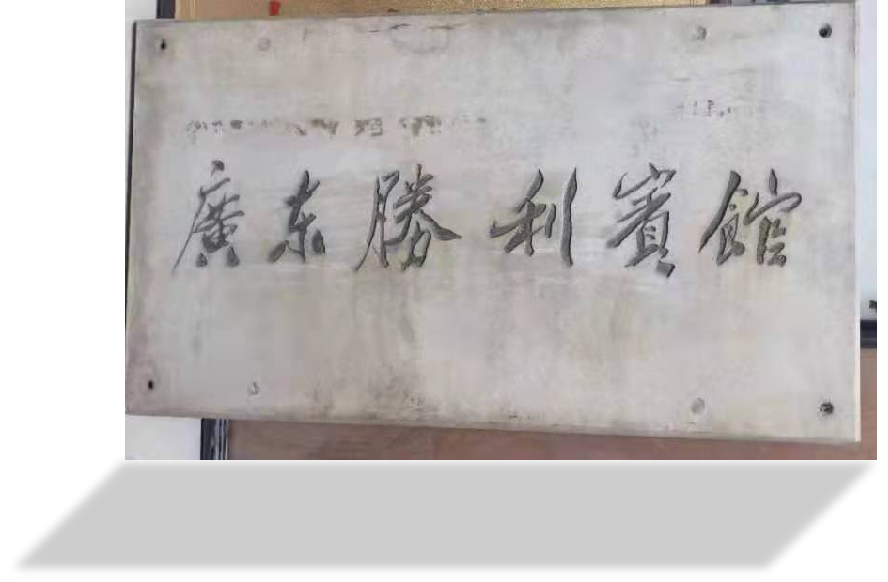 廣东勝利賓館